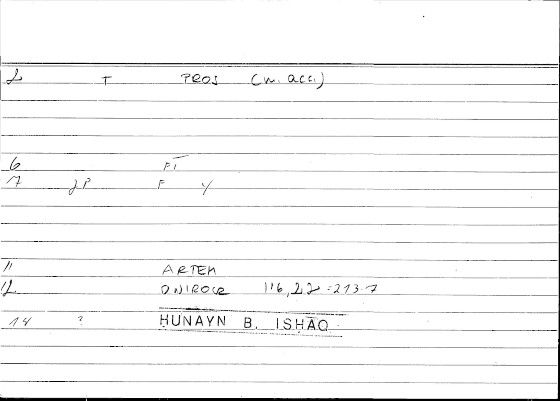 2 T PROS (w. acc.)
6 FĪ
7 JP F Y
11 ARTEM
12 ONIROCR 116,22 = 213.7
14 ? ḤUNAYN B. ISḤĀQ